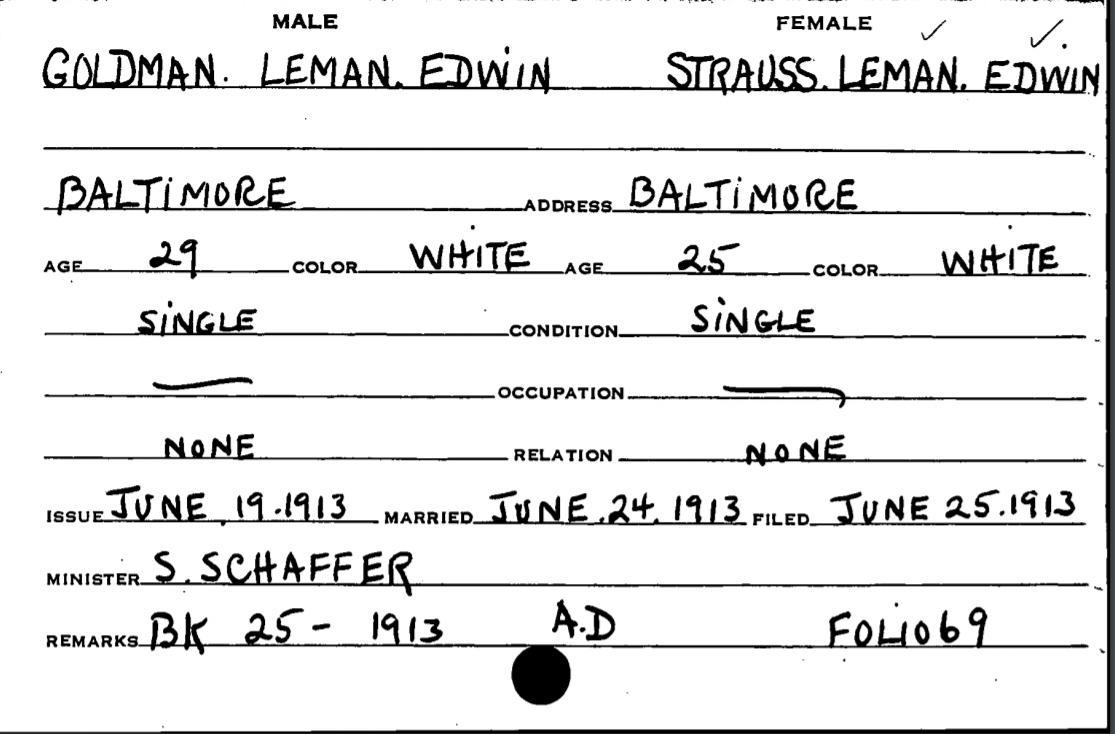 MALE FEMALE
GOLDMAN. LEMAN. EDWIN STRAUSS. LEMAN. EDWIN
BALTIMORE ADDRESS BALTIMORE
AGE 29 COLOR WHITE AGE 25 COLOR WHITE
SINGLE CONDITION SINGLE
OCCUPATION
NONE RELATION NONE
ISSUE JUNE 19.1913 MARRIED JUNE.24.1913 FILED JUNE 25.1913
MINISTER S. SCHAFFER
REMARKS BK 25- 1913 A.D FOLIO 69